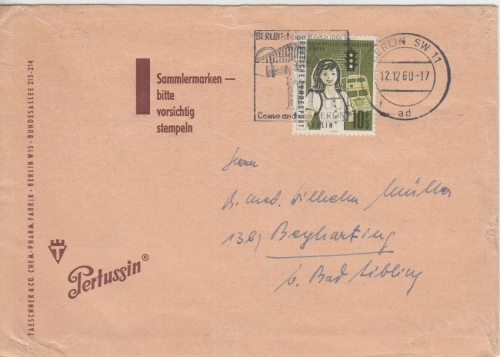 BERLIN
BERLIN SW 11
12.12.60-17
ad
Come and
BERLIN
DEUTSCHE BUNDESPOST
BERLIN
10
Sammlermarken —
bitte
vorsichtig
stempeln
TAESCHNER & CO. CHEM.-PHARM. FABRIK · BERLIN W15 · BUNDESALLEE 213-214
Pertussin®
Herrn
Dr. med. Wilhelm Müller
Beyharting
b. Bad Aibling